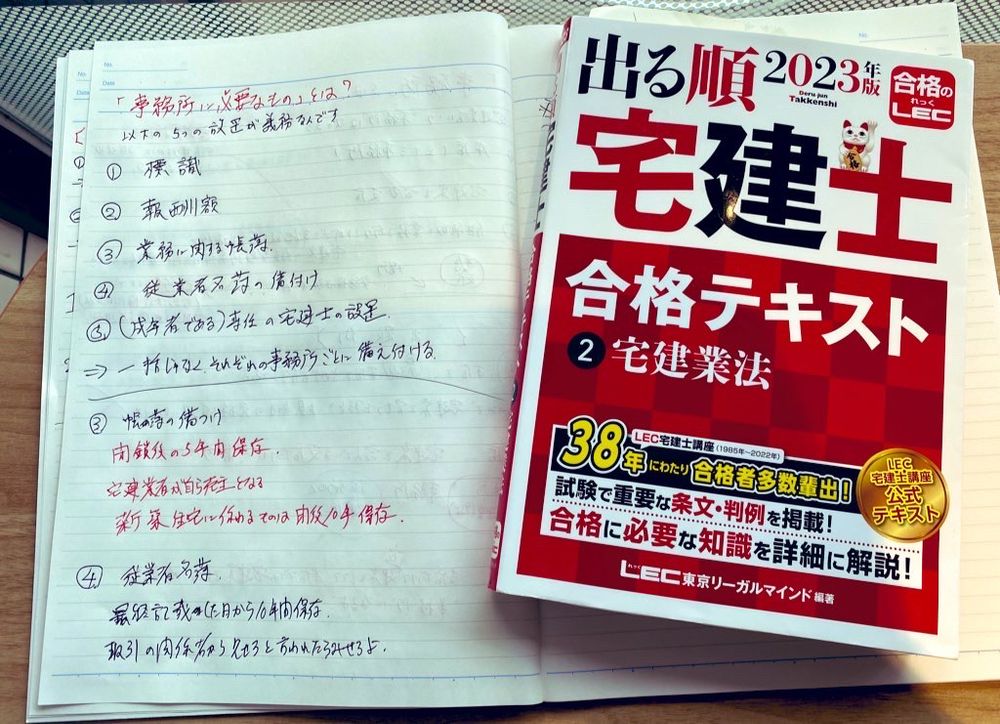 No.
Date
「事務所に必要なもの」とは?
以下の5つの設置が義務なんです
① 標識
② 報酬額
③ 業務に関する帳簿.
④ 従業者名簿の備付け
⑤ (成年者である)専任の宅建士の設置.
⇒ 一括じゃなく、それぞれの事務所ごとに備え付ける.
③ 帳簿の備つけ
閉鎖後の5年間保存.
宅建業者が自ら売主となる
新築住宅に係わるものは閉後10年保存.
④ 従業者名簿.
最終記載した日から10年間保存.
取引の関係者から見せろと言われたらみせるよ.
出る順
2023年版
Deru-jun
Takkenshi
合格の
れっく
LEC
宅建士
合格
合格テキスト
2 宅建業法
LEC宅建士講座(1985年~2022年)
38年にわたり合格者多数輩出!
試験で重要な条文・判例を掲載!
合格に必要な知識を詳細に解説!
LEC
宅建士講座
公式
テキスト
れっく
LEC東京リーガルマインド 編著